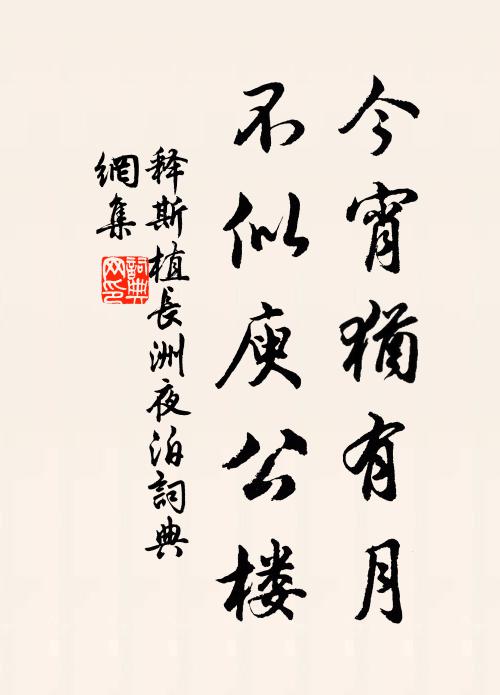 今宵猶有月
不似庾公楼
释斯植長洲夜泊詞典
網集
詞典网印